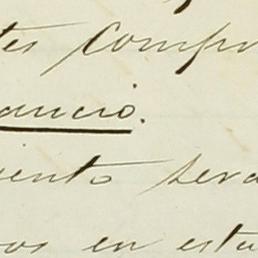 tes compr
ancio.
iento sera
os en esta